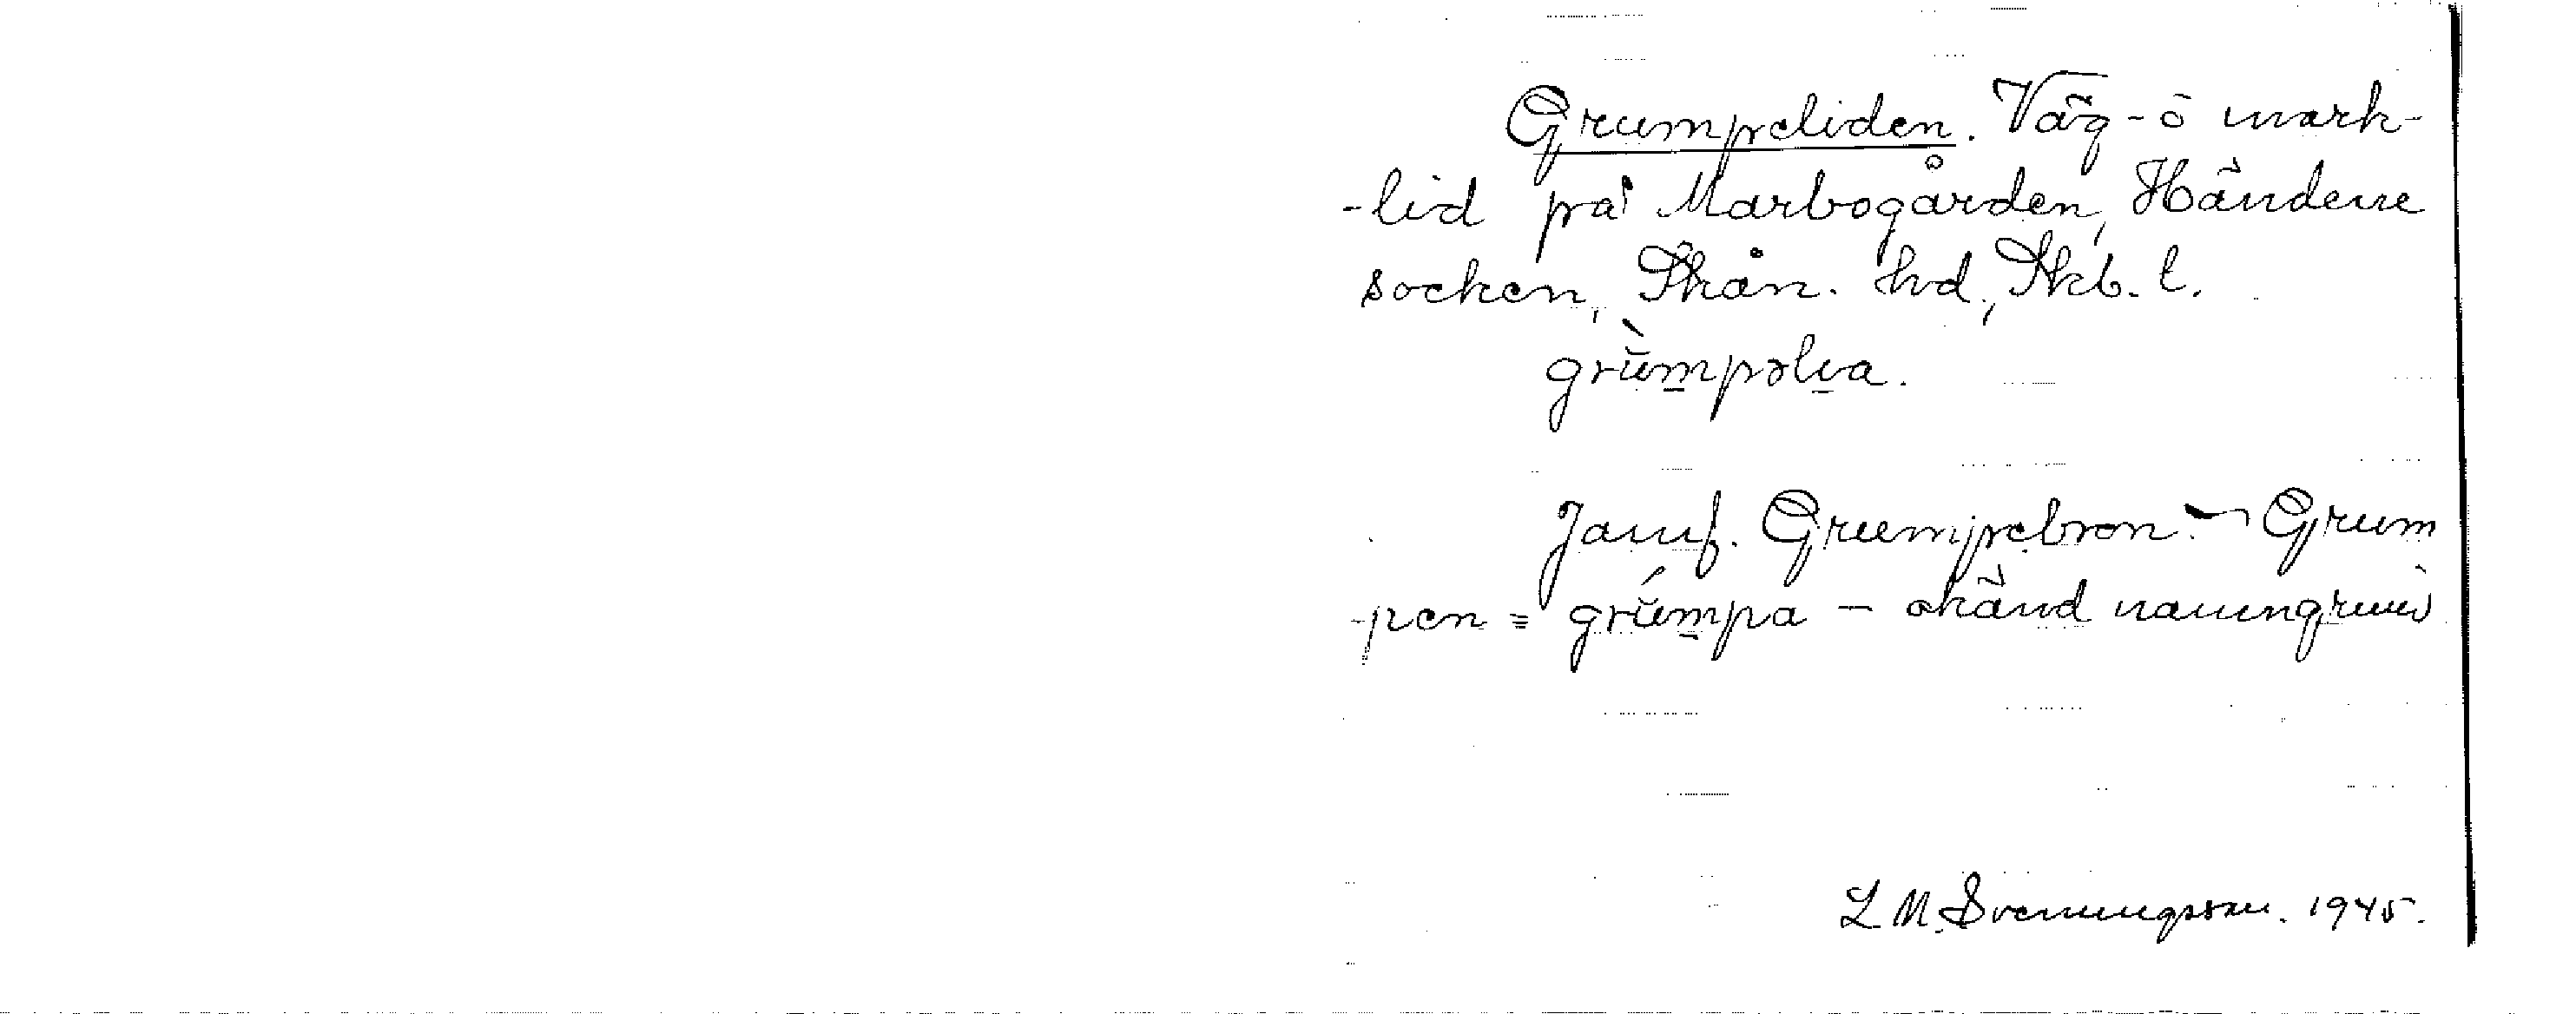 Grumpeliden. Väg- o mark-
-lid på Marbogården, Händene
socken, Skån. hd, Skb. l.
grùmpəlia.
Jämf. Grumpebron. – Grum
-pen = grúmpa – okänd namngrund
L. M. Svenungsson. 1945.